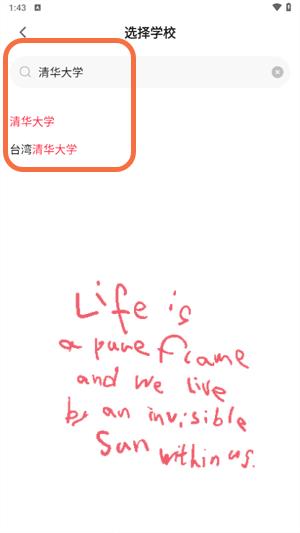 1:43
选择学校
清华大学
清华大学
台湾清华大学
Life is
a pure flame
and we live
by an invisible
Sun within us.